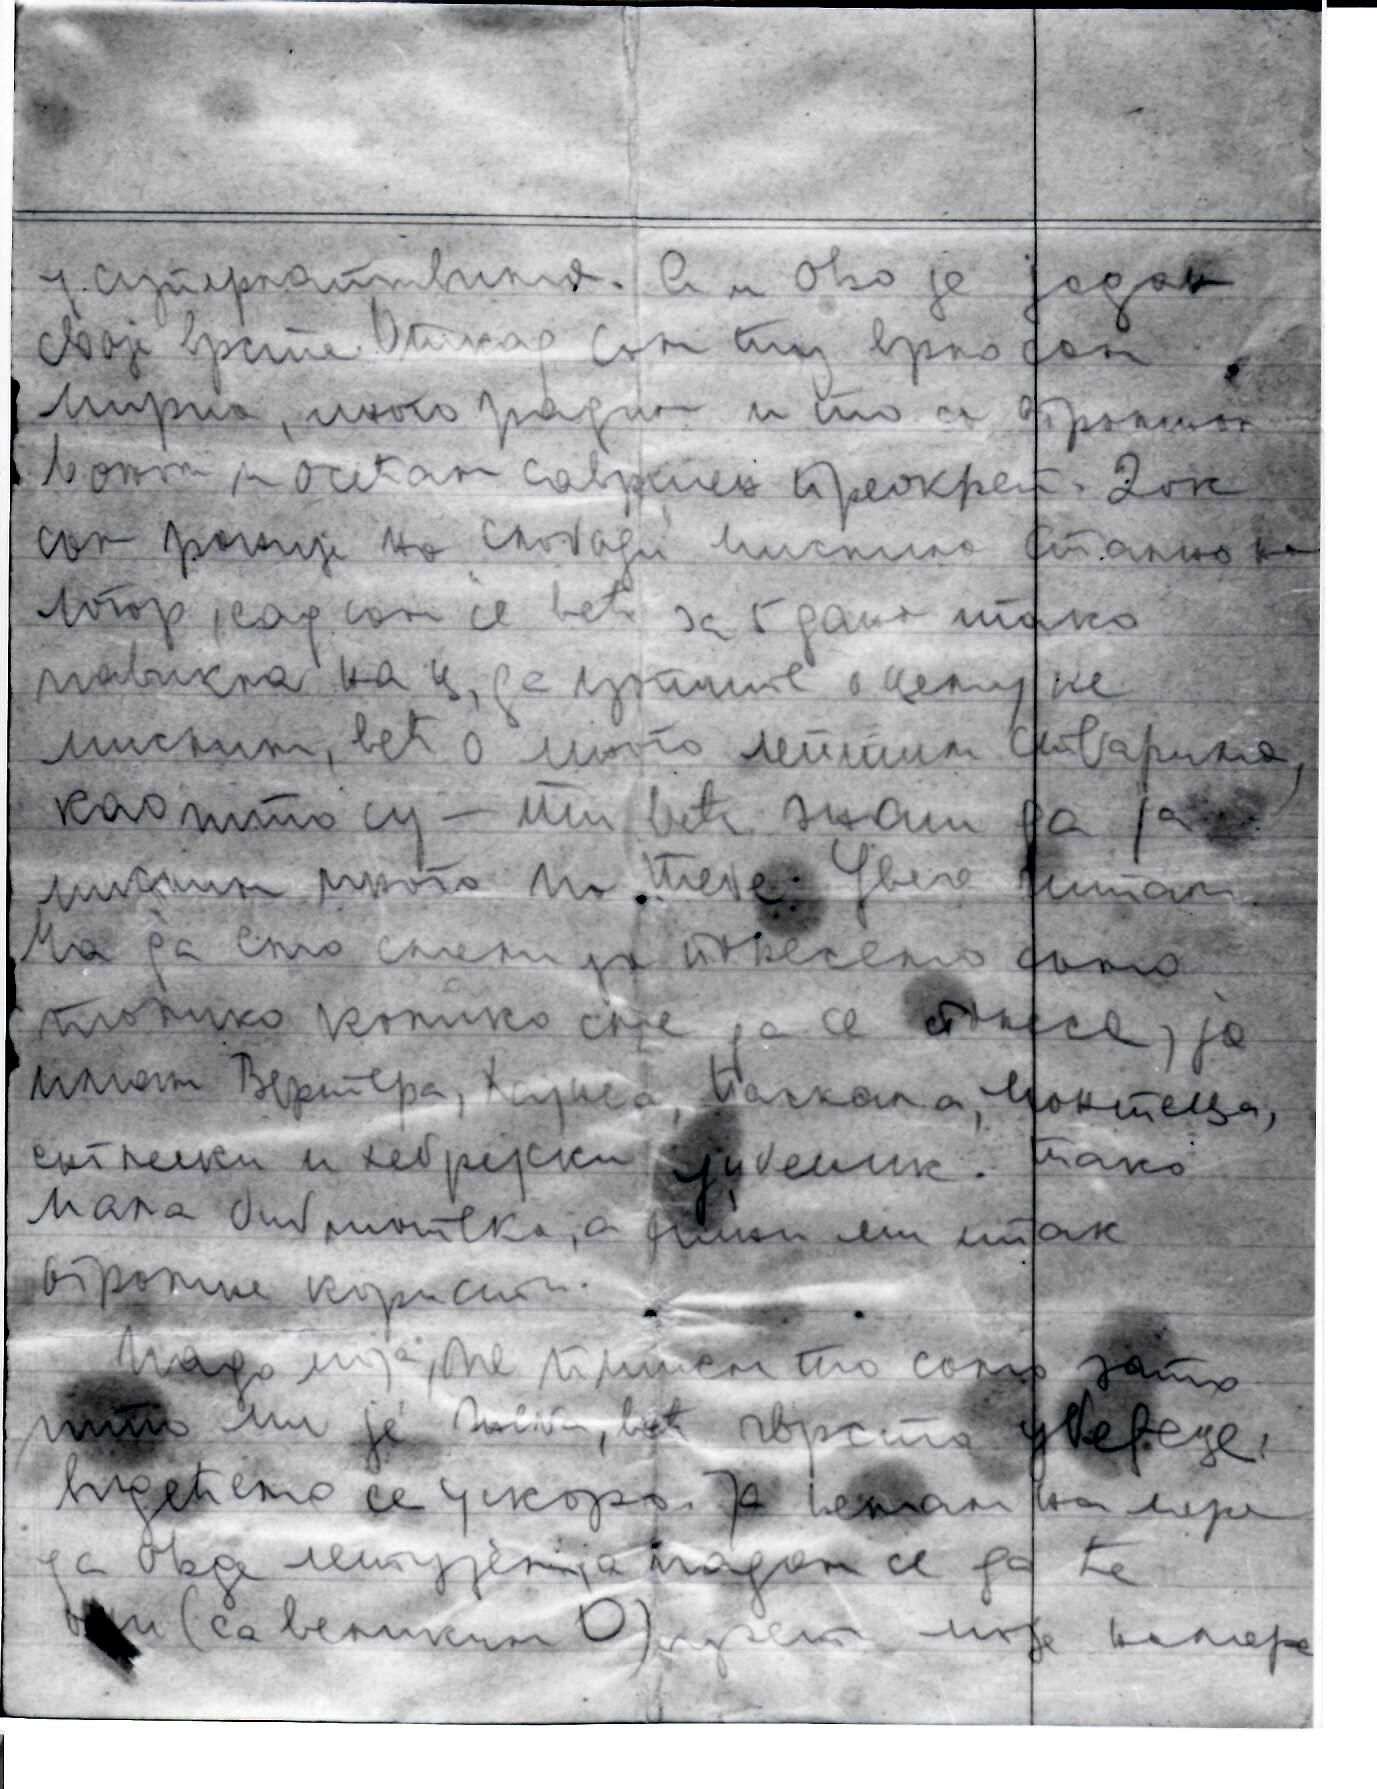 у суперлативима. Али ово је један
своје врсте. Откад сам ту врло сам
мирна, много радим и то са огромном
вољом и осећам савршен преокрет. Док
сам раније на слободи мислила стално на
логор, сад сам се већ за 5 дана тако
навикла на њ, да уопште о њему не
мислим, већ о много лепшим стварима,
као што су — ти већ знаш да ја
мислим много на тебе. Увече читам.
Ма да смо смели да понесемо само
толико колико сме да се понесе, ја
имам Вертера, Хајнеа, Паскала, Монтења,
енглески и хебрејски уџбеник. Тако
мала библиотека, а чини ми ипак
огромне користи.
Надо моја, не пишем то само зато
што ми је жеља, већ чврсто уверење,
видећемо се ускоро. Ја немам намере
да овде летујем, ја надам се да ће
Они (са великим О) узети моје намере